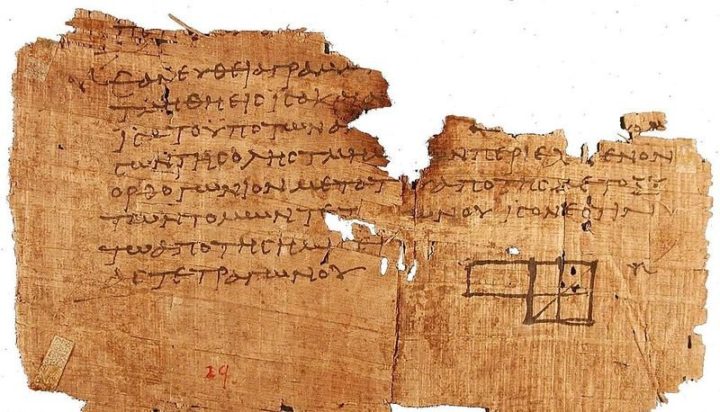 ΕΑΝ ΕΥΘΕΙΑ ΓΡΑΜΜ
ΤΜΗΘΗ ΕΙϹ ΙϹΑ ΚΑΙ Α
ΙϹΑ ΤΟ ΥΠΟ ΤΩΝ Α
ϹΩΝ ΤΗϹ ΟΛΗϹ ΤΜΗΜΑ ΩΝ ΠΕΡΙΕΧΟΜΕΝΟΝ
ΟΡΘΟΓΩΝΙΟΝ ΜΕΤΑ ΤΟΥ ΑΠΟ ΤΗϹ ΜΕΤΟΞΥ
ΤΩΝ ΤΟΜΩΝ ΤΕΤ ΩΝΟΥ ΙϹΟΝ ΕϹΤΙΝ
ΤΩ ΑΠΟ ΤΗϹ ΗΜΙϹΕΙ
ΤΕΤΡΑΓΩΝΟΥ
29.